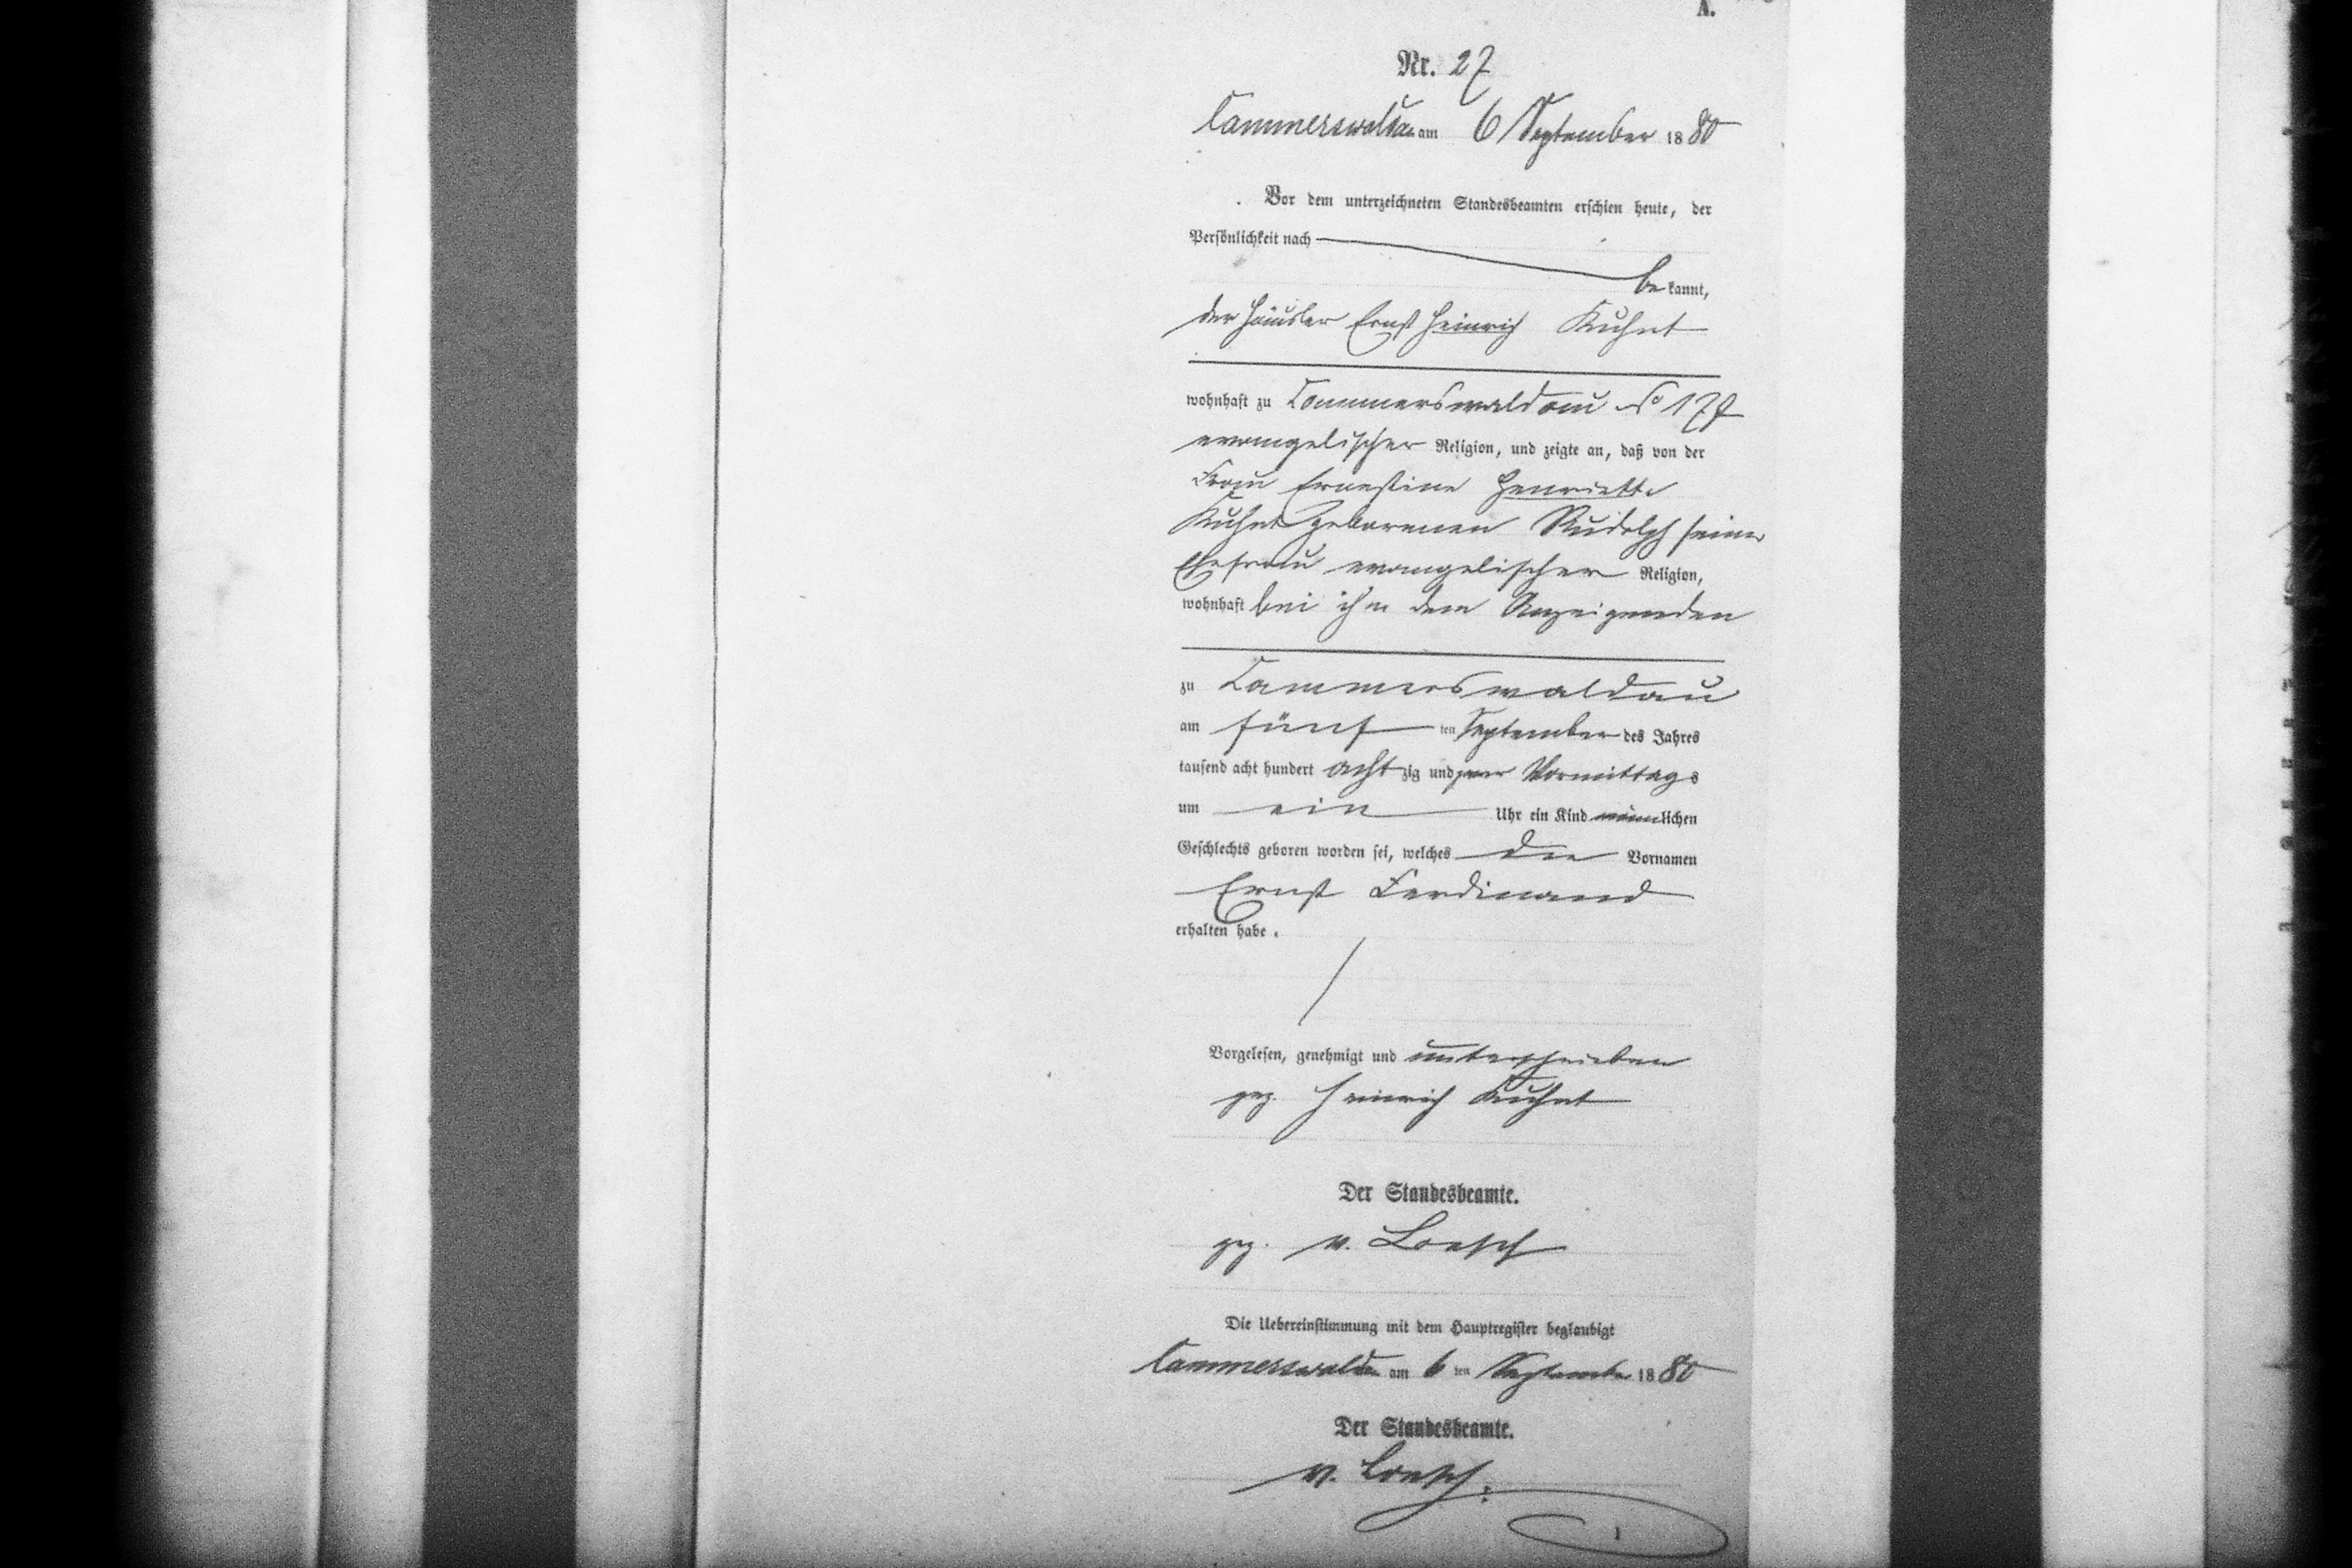 A.
Nr. 27
Cammerswaldau am 6 September 1880
Vor dem unterzeichneten Standesbeamten erschien heute, der
Persönlichkeit nach
be kannt,
der Häusler Ernst Heinrich Kuhnt
wohnhaft zu Cammerswaldau No 177
evangelischer Religion, und zeigte an, daß von der
Frau Ernestine Henriette
Kuhnt geborenen Rudolph seiner
Ehefrau evangelischer Religion,
wohnhaft bei ihm dem Anzeigenden
zu Cammerswaldau
am fünf ten September des Jahres
tausend acht hundert acht zig und Vormittags
um ein Uhr ein Kind männlichen
Geschlechts geboren worden sei, welches die Vornamen
Ernst Ferdinand
erhalten habe.
Vorgelesen, genehmigt und unterschrieben
gez. Heinrich Kuhnt
Der Standesbeamte.
gez. v. Loesch
Die Uebereinstimmung mit dem Hauptregister beglaubigt
Cammerswaldau am 6 ten September 1880
Der Standesbeamte.
v. Loesch.